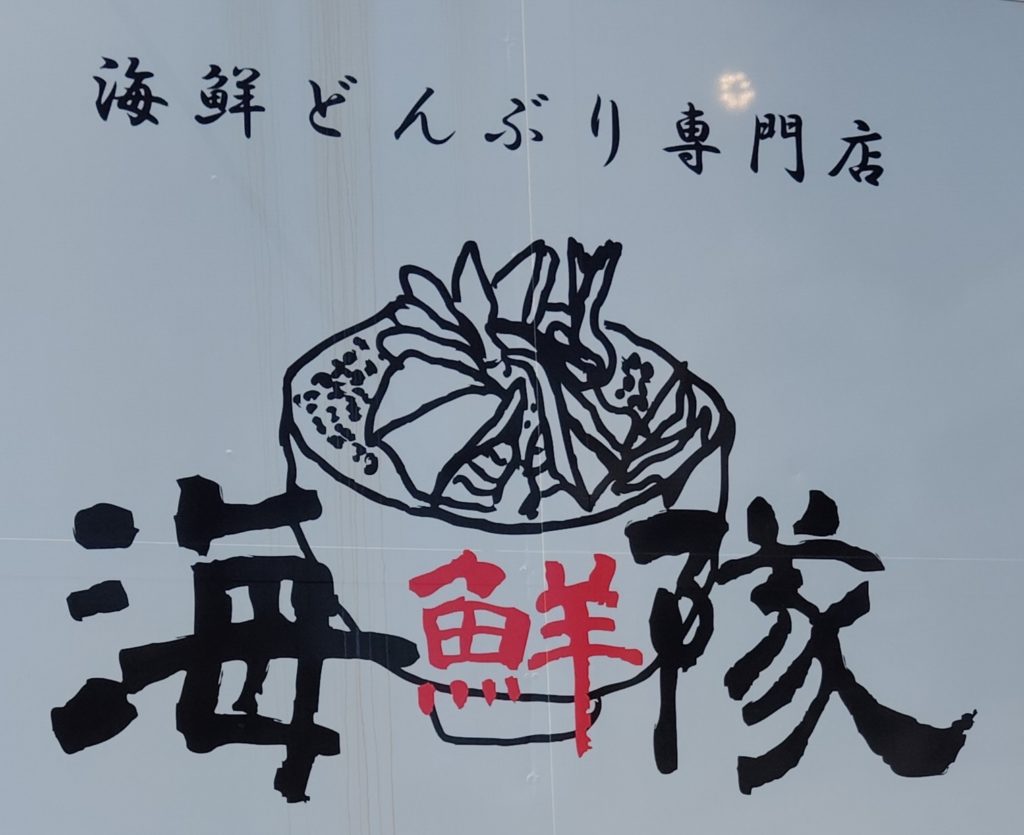 海鮮どんぶり専門店
海鮮隊